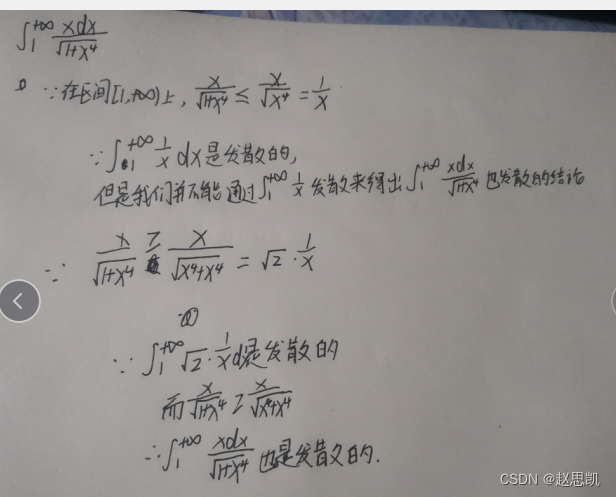 ∫₁^{+∞} xdx/√(1+x⁴)
① ∵在区间[1,+∞)上, x/√(1+x⁴) ≤ x/√(x⁴) = 1/x
∵ ∫₁^{+∞} 1/x dx是发散的,
但是我们并不能通过∫₁^{+∞} 1/x 发散来得出 ∫₁^{+∞} xdx/√(1+x⁴) 也发散的结论
∵ x/√(1+x⁴) ≥ x/√(x⁴+x⁴) = √2 · 1/x
②
∵ ∫₁^{+∞} √2 · 1/x dx是发散的
而 x/√(1+x⁴) ≥ x/√(x⁴+x⁴)
∴ ∫₁^{+∞} xdx/√(1+x⁴) 也是发散的.
CSDN @赵思凯